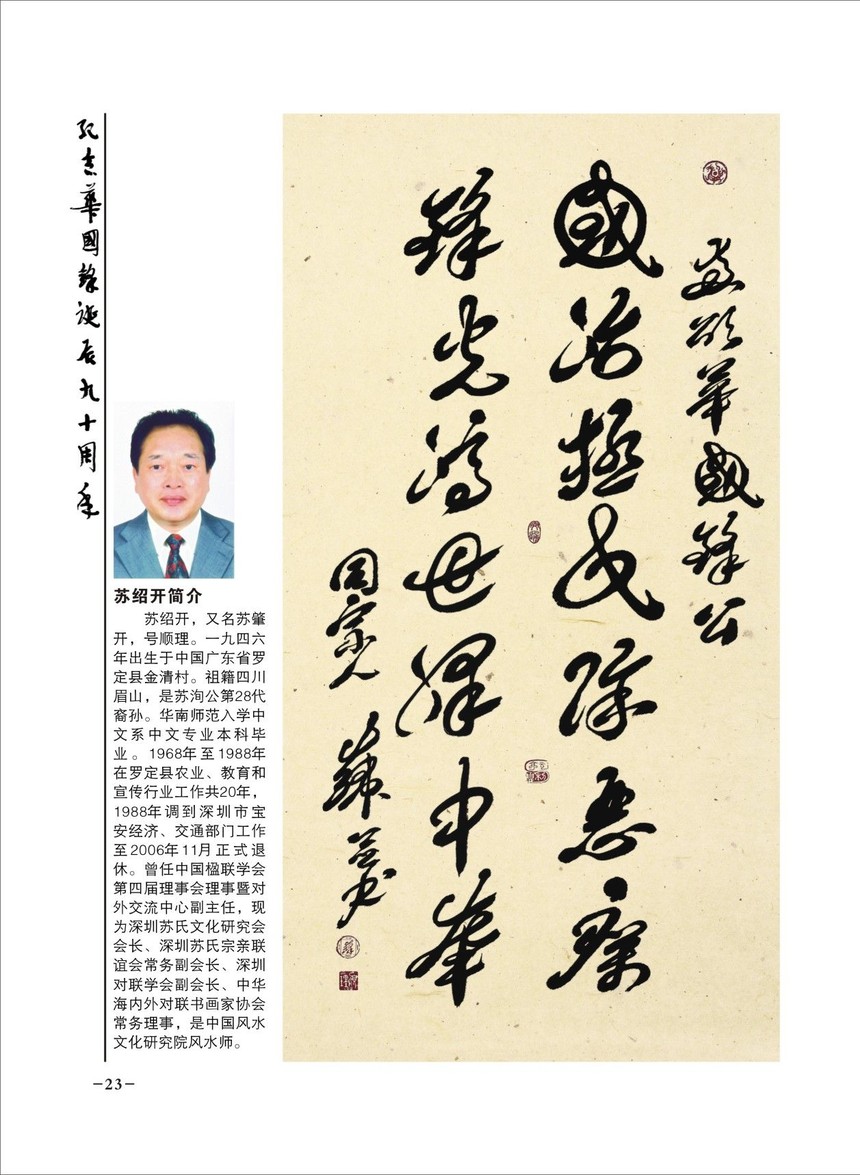 纪念華國鋒诞辰九十周年
苏绍开简介
苏绍开，又名苏肇
开，号顺理。一九四六
年出生于中国广东省罗
定县金清村。祖籍四川
眉山，是苏洵公第28代
裔孙。华南师范入学中
文系中文专业本科毕
业。1968年至1988年
在罗定县农业、教育和
宣传行业工作共20年，
1988年调到深圳市宝
安经济、交通部门工作
至2006年11月正式退
休。曾任中国楹联学会
第四届理事会理事暨对
外交流中心副主任，现
为深圳苏氏文化研究会
会长、深圳苏氏宗亲联
谊会常务副会长、深圳
对联学会副会长、中华
海内外对联书画家协会
常务理事，是中国风水
文化研究院风水师。
華國鋒公
國治拯民除惡
鋒光濟世中華
－23－